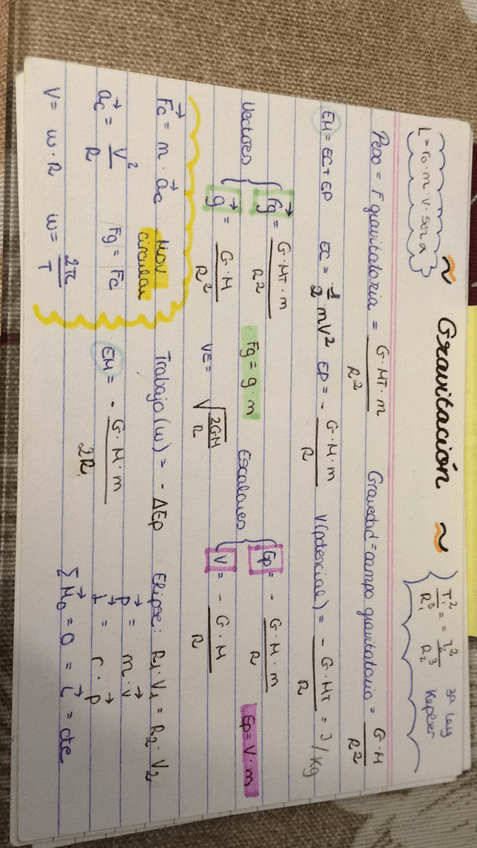 ~ Gravitación ~
L = r0 · m · v · sen α
T1²/R1³ = T2²/R2³ 3ª Ley Kepler
Peso = F gravitatoria = G · MT · m / R² Gravedad = campo gravitatorio = G · M / R²
EM = EC + EP EC = 1/2 mV² EP = - G · M · m / R V (potencial) = - G · MT / R = J/Kg
Vectores { Fg = G · MT · m / R² Fg = g · m Escalares { Ep = - G · M · m / R Ep = V · m
g = G · M / R² VE = √2GM/R V = - G · M / R
Fc = m · ac Mov circular Trabajo (w) = - ΔEp Elipse: R1 · V1 = R2 · V2
ac = V²/R Fg = Fc EM = - G · M · m / 2R p = m · v
L = r · p
V = w · R w = 2π/T ΣM0 = 0 = L = cte